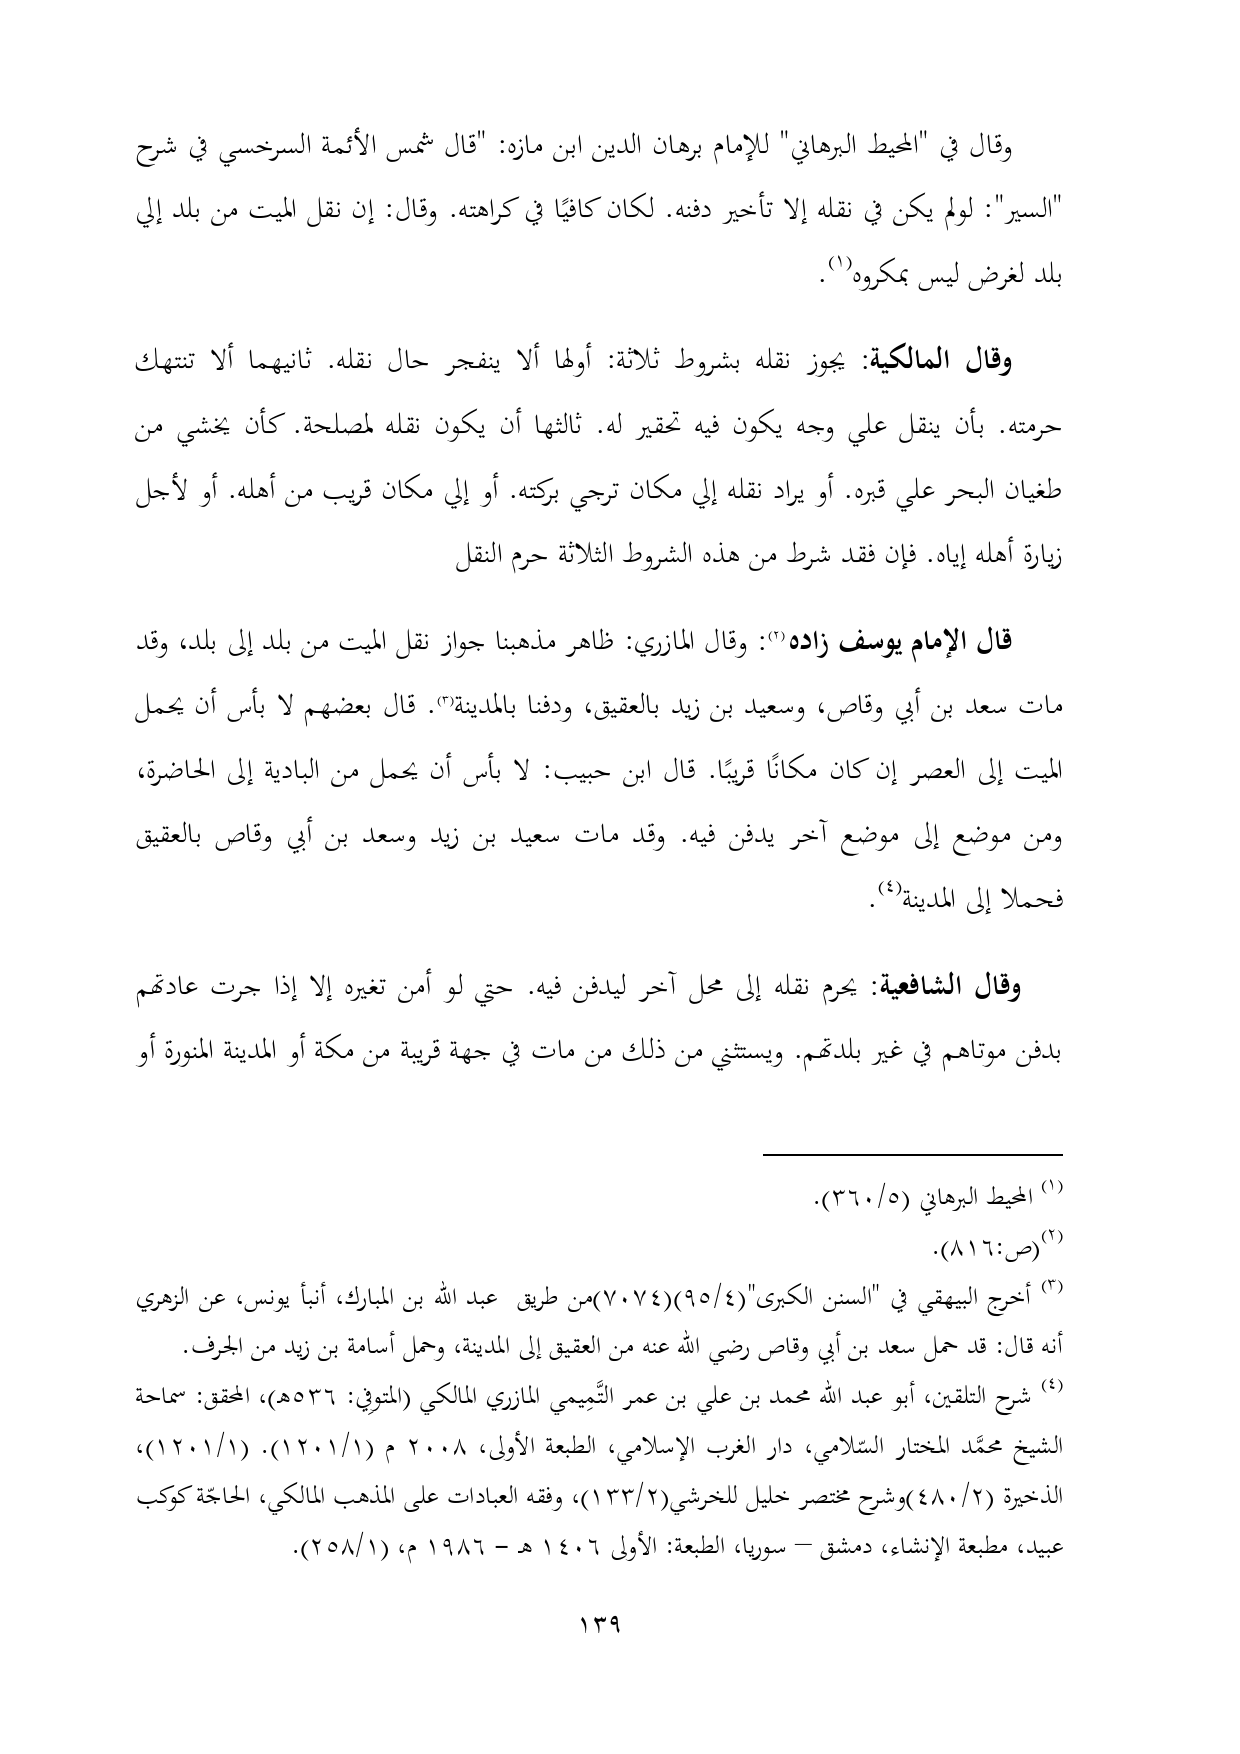 وقال في "المحيط البرهاني" للإمام برهان الدين ابن مازه: "قال شمس الأئمة السرخسي في شرح
"السير": لولم يكن في نقله إلا تأخير دفنه. لكان كافيًا في كراهته. وقال: إن نقل الميت من بلد إلي
بلد لغرض ليس بمكروه(١).
وقال المالكية: يجوز نقله بشروط ثلاثة: أولها ألا ينفجر حال نقله. ثانيهما ألا تنتهك
حرمته. بأن ينقل علي وجه يكون فيه تحقير له. ثالثها أن يكون نقله لمصلحة. كأن يخشي من
طغيان البحر علي قبره. أو يراد نقله إلي مكان ترجي بركته. أو إلي مكان قريب من أهله. أو لأجل
زيارة أهله إياه. فإن فقد شرط من هذه الشروط الثلاثة حرم النقل
قال الإمام يوسف زاده(٢): وقال المازري: ظاهر مذهبنا جواز نقل الميت من بلد إلى بلد، وقد
مات سعد بن أبي وقاص، وسعيد بن زيد بالعقيق، ودفنا بالمدينة(٣). قال بعضهم لا بأس أن يحمل
الميت إلى العصر إن كان مكانًا قريبًا. قال ابن حبيب: لا بأس أن يحمل من البادية إلى الحاضرة،
ومن موضع إلى موضع آخر يدفن فيه. وقد مات سعيد بن زيد وسعد بن أبي وقاص بالعقيق
فحملا إلى المدينة(٤).
وقال الشافعية: يحرم نقله إلى محل آخر ليدفن فيه. حتي لو أمن تغيره إلا إذا جرت عادتهم
بدفن موتاهم في غير بلدتهم. ويستثني من ذلك من مات في جهة قريبة من مكة أو المدينة المنورة أو
(١) المحيط البرهاني (٣٦٠/٥).
(٢)(ص:٨١٦).
(٣) أخرج البيهقي في "السنن الكبرى"(٩٥/٤)(٧٠٧٤)من طريق عبد الله بن المبارك، أنبأ يونس، عن الزهري
أنه قال: قد حمل سعد بن أبي وقاص رضي الله عنه من العقيق إلى المدينة، وحمل أسامة بن زيد من الجرف.
(٤) شرح التلقين، أبو عبد الله محمد بن علي بن عمر التَّمِيمي المازري المالكي (المتوفِي: ٥٣٦هـ)، المحقق: سماحة
الشيخ محمَّد المختار السّلامي، دار الغرب الإسلامي، الطبعة الأولى، ٢٠٠٨ م (١٢٠١/١). (١٢٠١/١)،
الذخيرة (٤٨٠/٢)وشرح مختصر خليل للخرشي(١٣٣/٢)، وفقه العبادات على المذهب المالكي، الحاجّة كوكب
عبيد، مطبعة الإنشاء، دمشق – سوريا، الطبعة: الأولى ١٤٠٦ هـ – ١٩٨٦ م، (٢٥٨/١).
١٣٩